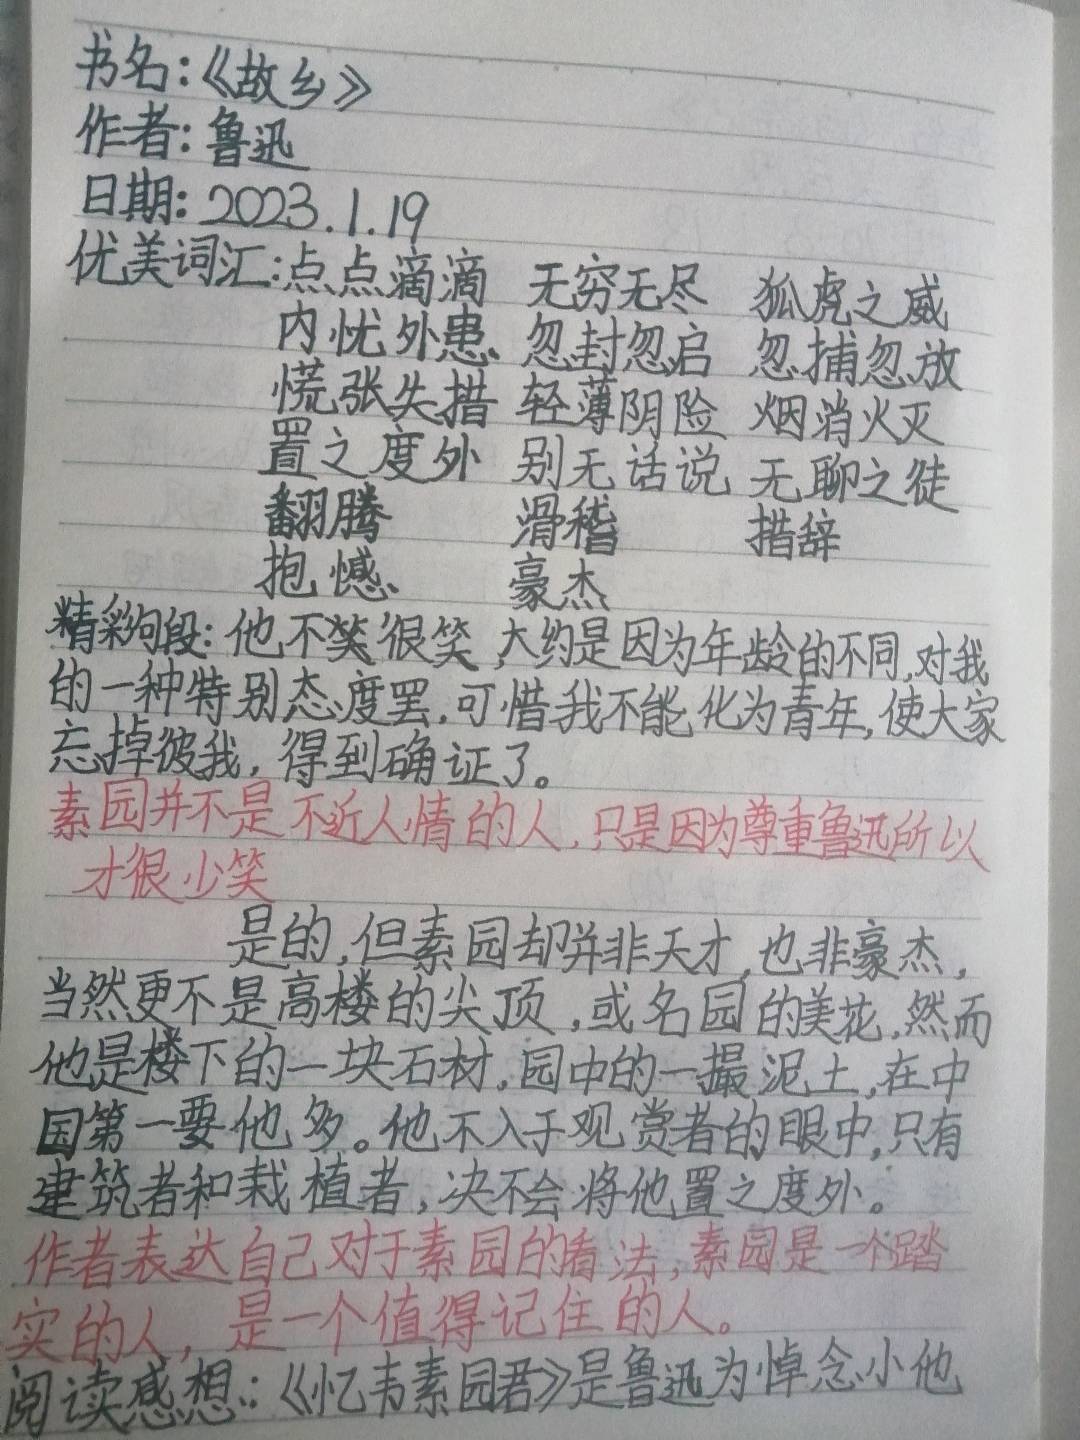 书名:《故乡》
作者:鲁迅
日期:2023.1.19
优美词汇:点点滴滴 无穷无尽 狐虎之威
内忧外患、忽封忽启 忽捕忽放
慌张失措 轻薄阴险 烟消火灭
置之度外 别无话说 无聊之徒
翻腾 滑稽 措辞
抱憾、 豪杰
精彩句段:他不笑很笑,大约是因为年龄的不同,对我
的一种特别态度罢,可惜我不能化为青年,使大家
忘掉彼我,得到确证了。
素园并不是不近人情的人,只是因为尊重鲁迅所以
才很少笑
是的,但素园却并非天才,也非豪杰,
当然更不是高楼的尖顶,或名园的美花,然而
他是楼下的一块石材,园中的一撮泥土,在中
国第一要他多。他不入于观赏者的眼中,只有
建筑者和栽植者,决不会将他置之度外。
作者表达自己对于素园的看法,素园是一个踏
实的人,是一个值得记住的人。
阅读感想:《忆韦素园君》是鲁迅为悼念小他